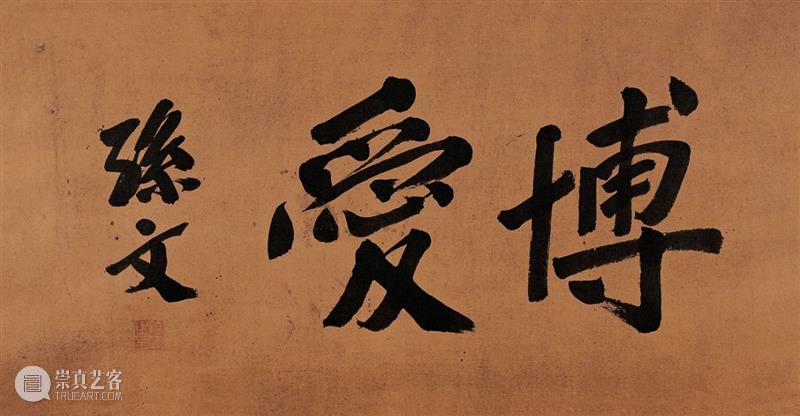 博愛
孫文
崇真艺客
TRUEART.COM